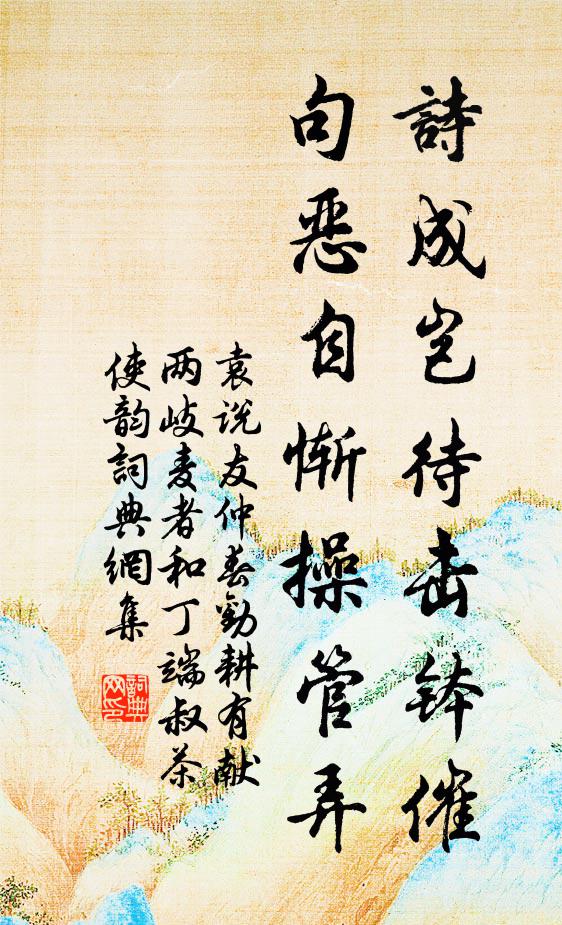 詩成岂待击鉢催
句恶自惭操管弄
袁说友仲春勸耕有献
两岐麦者和丁端叔茶
使韵詞典網集
詞典
网印